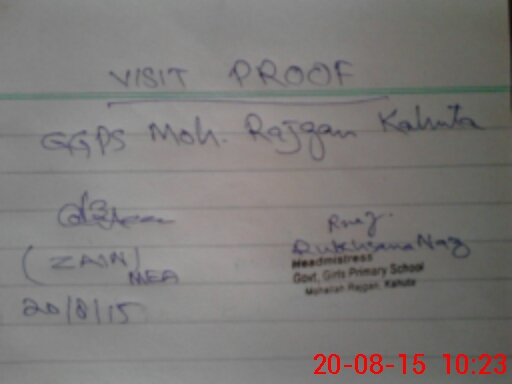 VISIT PROOF
GGPS Moh. Rajgan Kahuta
(ZAIN)
MEA
20/8/15
Naz
Headmistress
Govt. Girls Primary School
Mohallah Rajgan, Kahuta
20-08-15 10:23